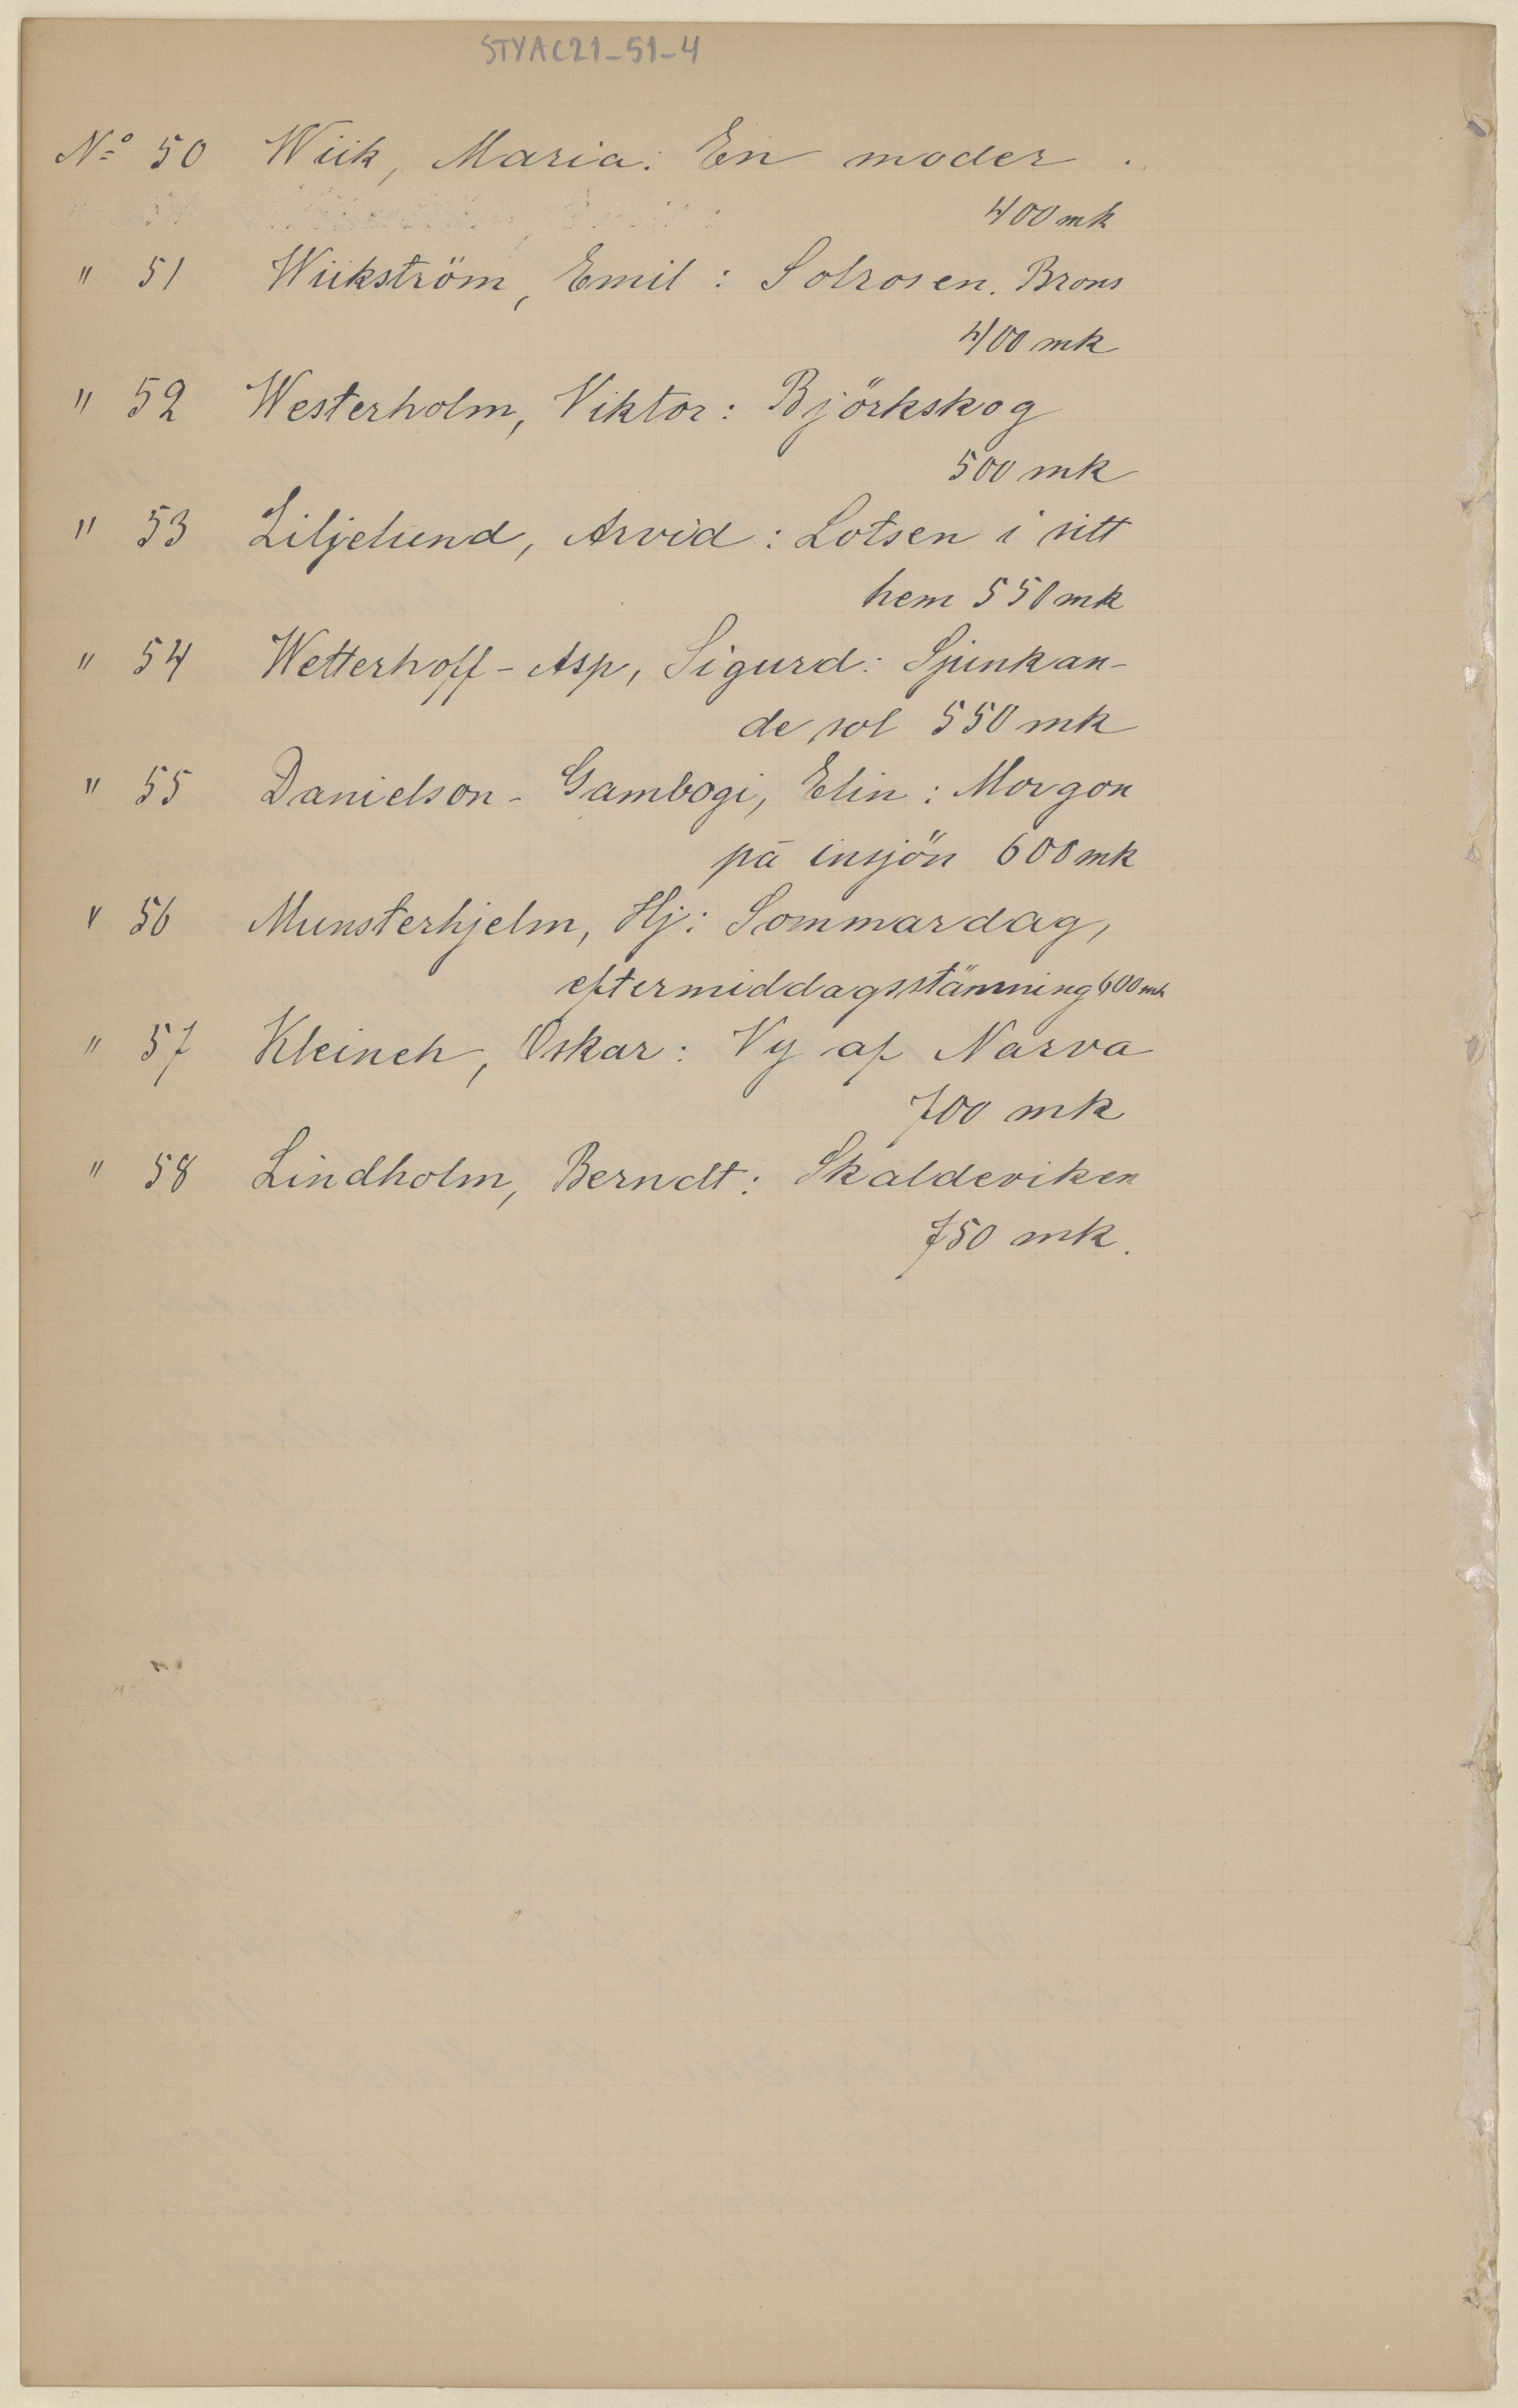 STYAC21-51-4
Nº 50 Wiik, Maria: En moder.
400 mk
" 51 Wiikström, Emil: Solrosen. Brons
400 mk
" 52 Westerholm, Viktor: Björkskog
500 mk
" 53 Liljelund, Arvid: Lotsen i sitt
hem 550 mk
" 54 Wetterhoff-Asp, Sigurd: Sjunkan-
de sol 550 mk
" 55 Danielson-Gambogi, Elin: Morgon
på insjön 600 mk
" 56 Munsterhjelm, Hj: Sommardag,
eftermiddagsstämning 600 mk
" 57 Kleineh, Oskar: Vy af Narva
700 mk
" 58 Lindholm, Berndt: Skaldeviken
750 mk.